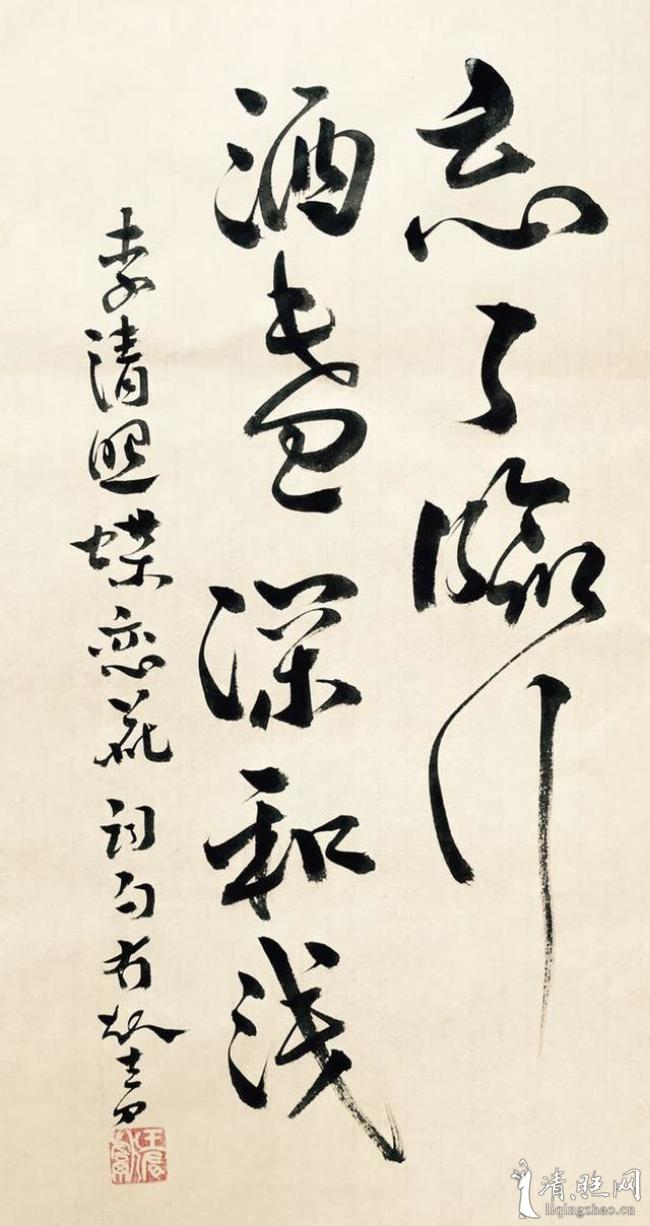 忘了臨行
酒盏深和浅
李清照蝶恋花词句
清照网
liqingzhao.cn